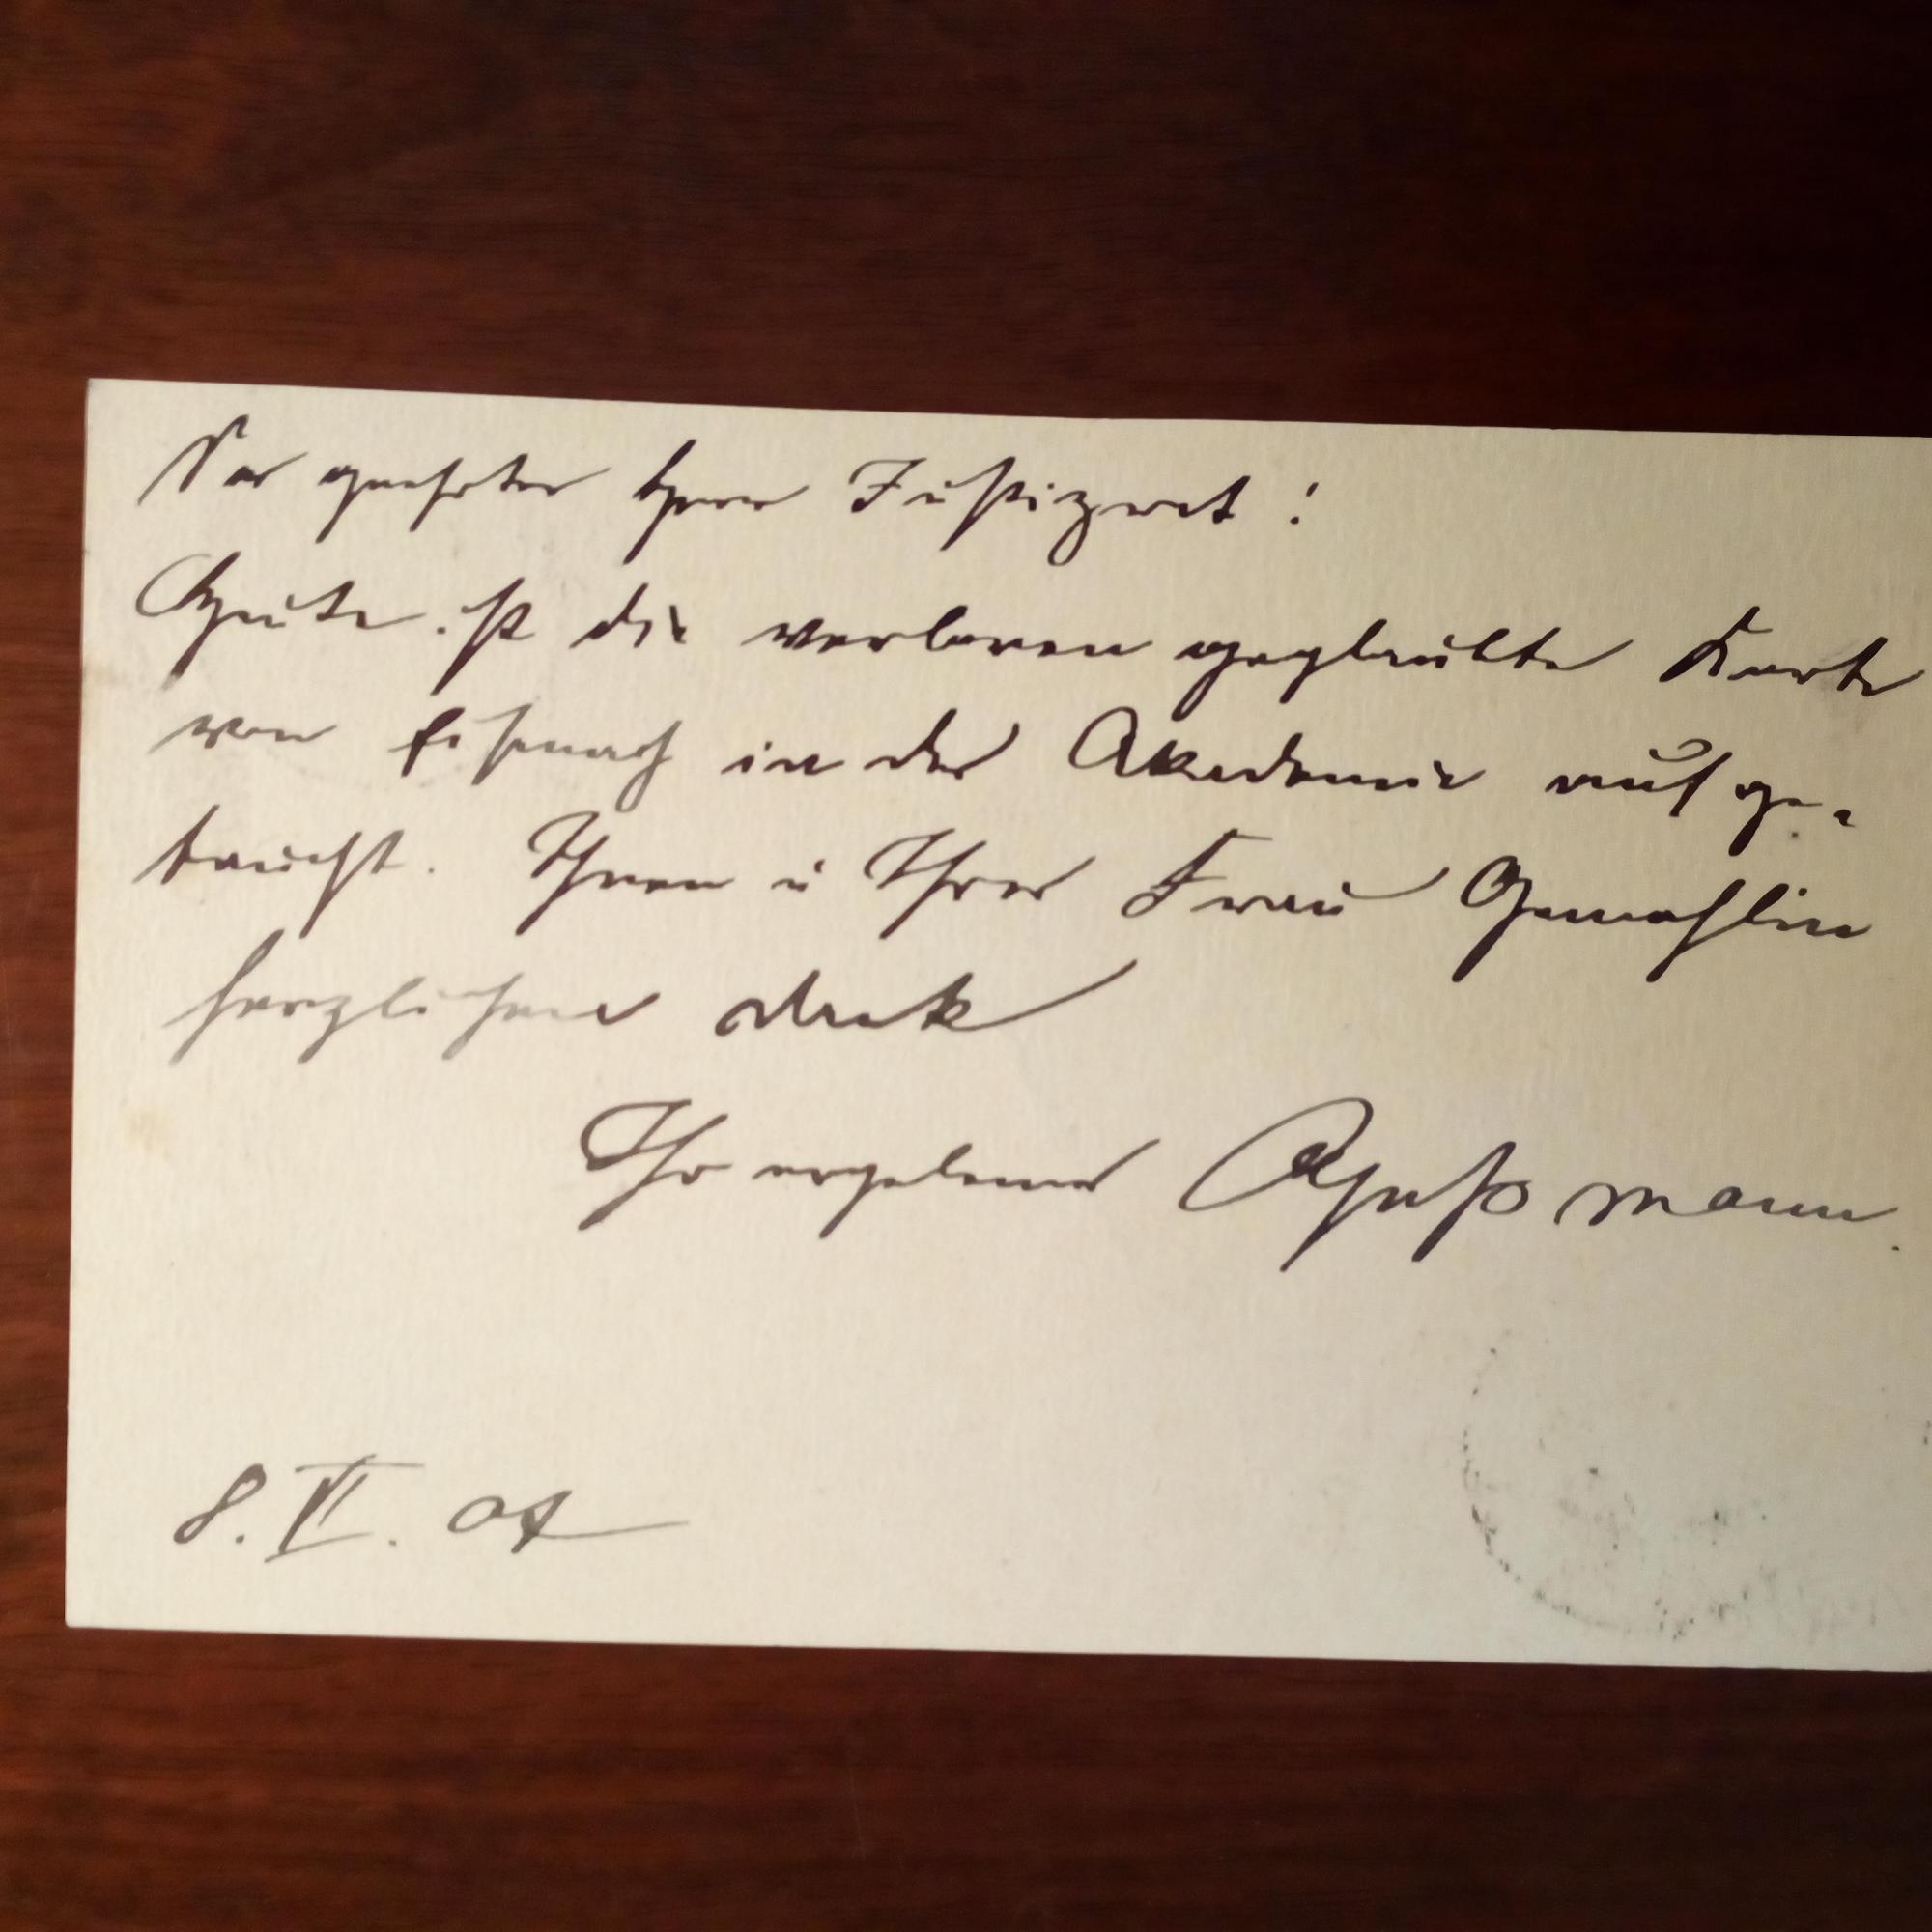 geehrter Herr Justizrat!
Heute ist die verloren geglaubte Karte
von Eisenach in der Akademie aufge-
taucht. Ihnen u Ihrer Frau Gemahlin
herzlichen Dank
Ihr ergebener
8. VI. 07